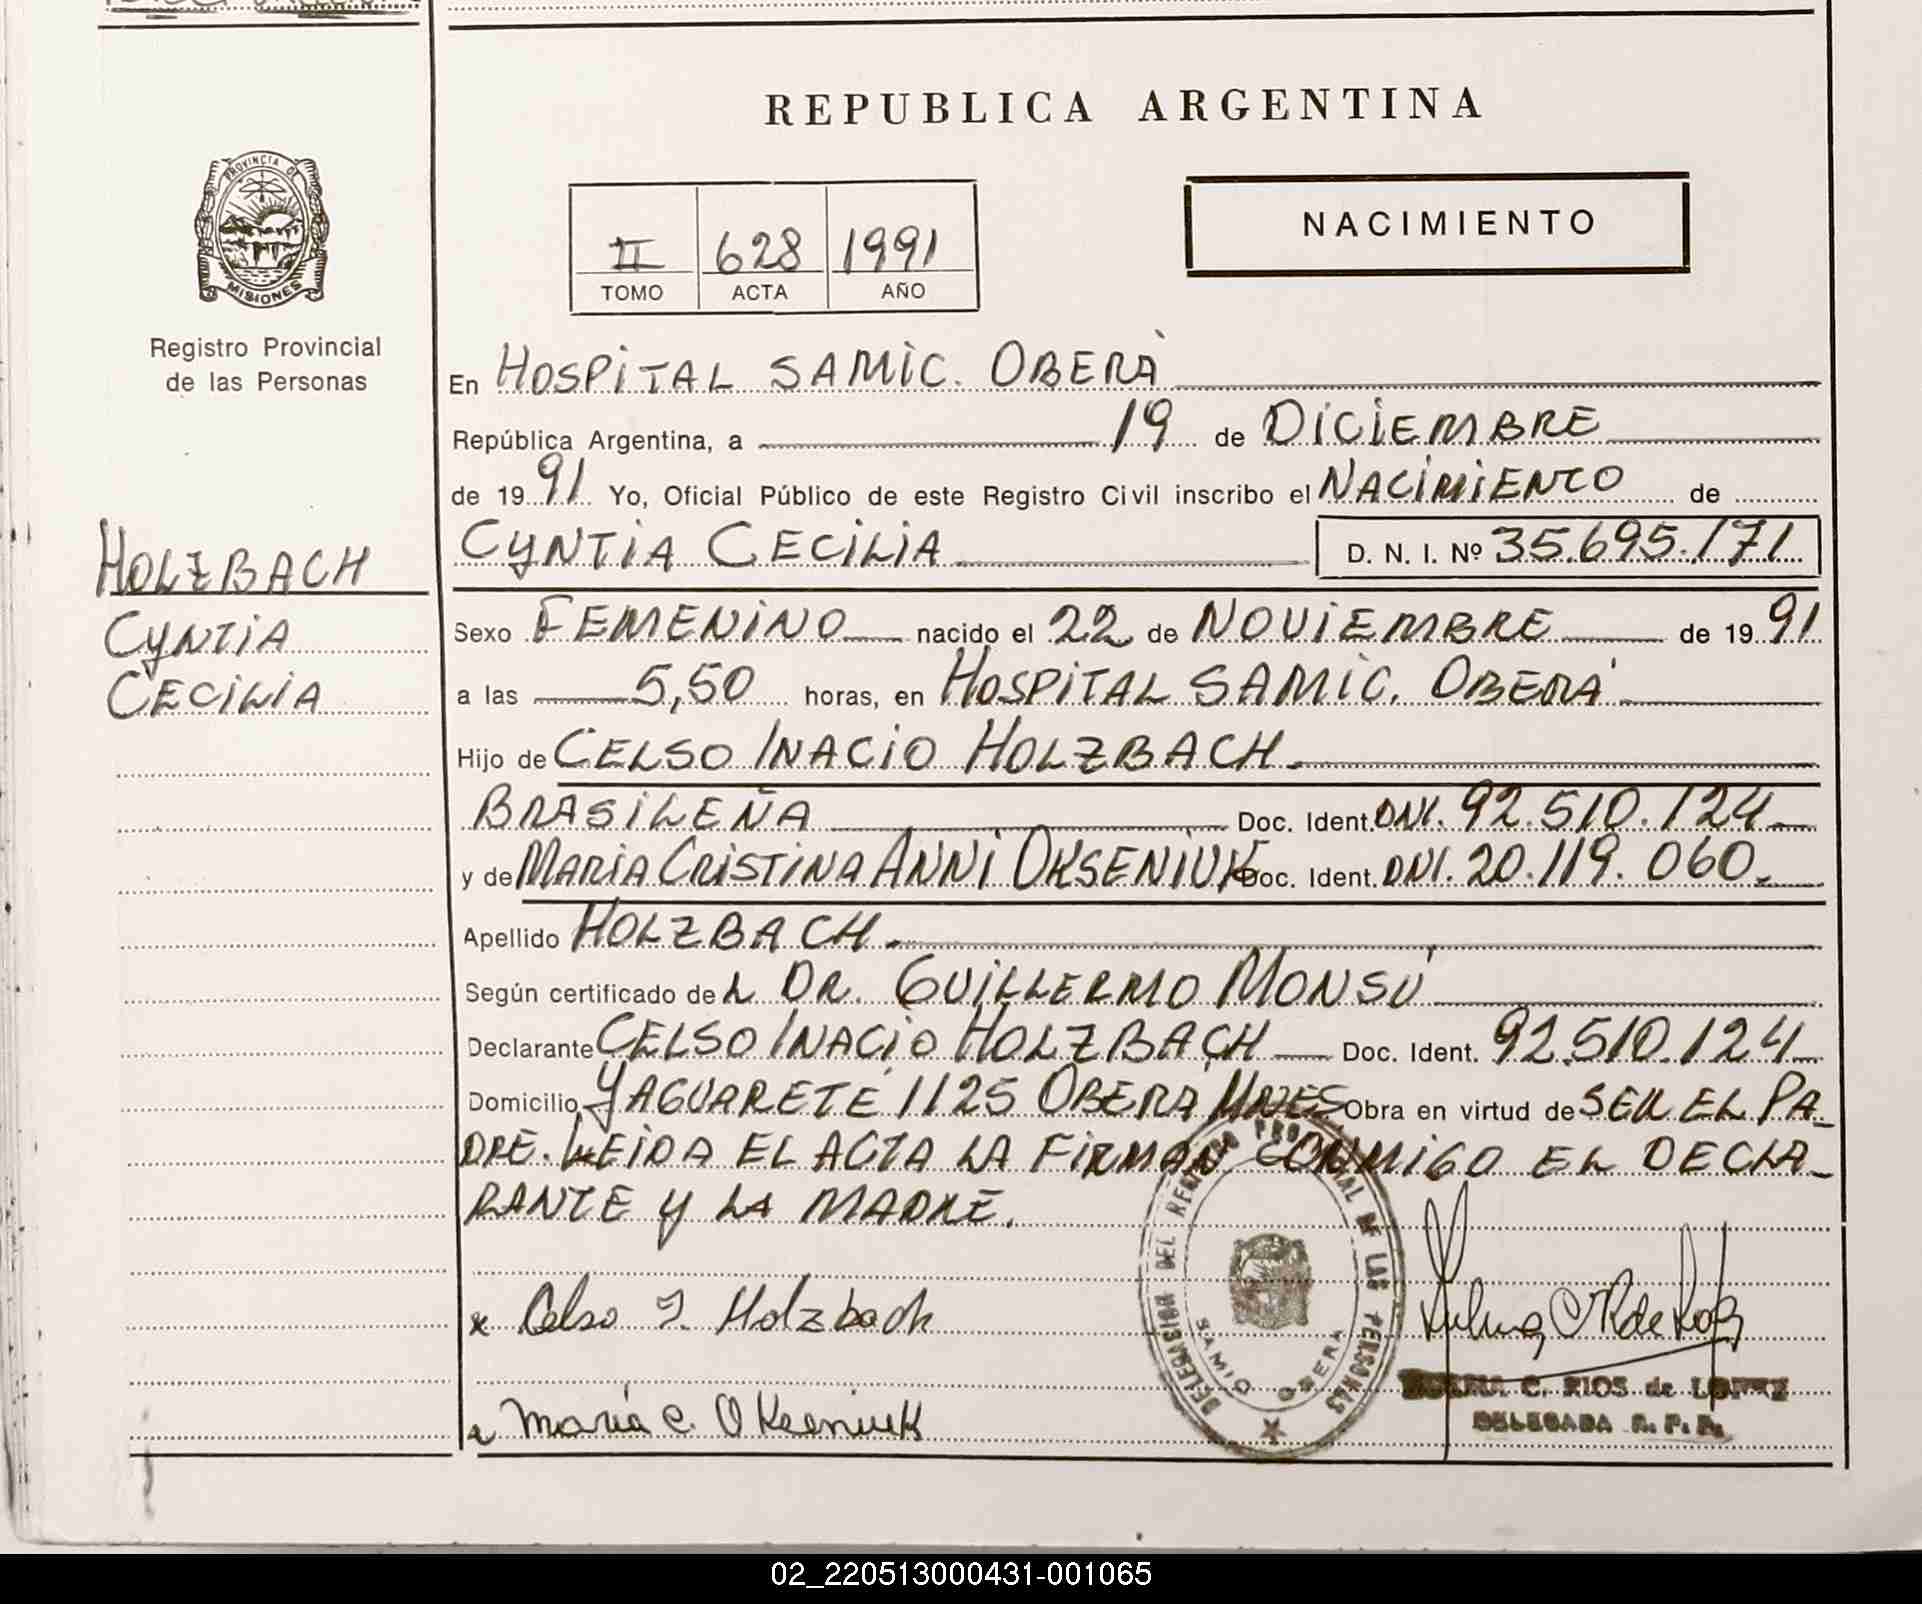 REPUBLICA ARGENTINA
PROVINCIA DE
MISIONES
Registro Provincial
de las Personas
II 628 1991
TOMO ACTA AÑO
NACIMIENTO
HOLZBACH
CYNTIA
CECILIA
En HOSPITAL SAMIC. OBERÁ
República Argentina, a 19 de DICIEMBRE
de 1991 Yo, Oficial Público de este Registro Civil inscribo el NACIMIENTO de
CYNTIA CECILIA D. N. I. Nº 35.695.171
Sexo FEMENINO nacido el 22 de NOVIEMBRE de 1991
a las 5,50 horas, en HOSPITAL SAMIC. OBERÁ
Hijo de CELSO INACIO HOLZBACH.
BRASILEÑA Doc. Ident. DNI. 92.510.124
y de MARIA CRISTINA ANNI OKSENIUK Doc. Ident. DNI. 20.119.060.
Apellido HOLZBACH.
Según certificado de L DR. GUILLERMO MONSÚ
Declarante CELSO INACIO HOLZBACH Doc. Ident. 92.510.124
Domicilio YAGUARETÉ 1125 OBERA, Obra en virtud de SER EL PA-
DRE. LEIDA EL ACTA LA FIRMAN CONMIGO EL DECLA-
RANTE Y LA MADRE.
x Celso I. Holzbach
María C. Okseniuk
DELEGACION DEL REGISTRO PROVINCIAL DE LAS PERSONAS
SAMIC OBERA
C. RIOS de LOPEZ
DELEGADA R. P. P.
02_220513000431-001065